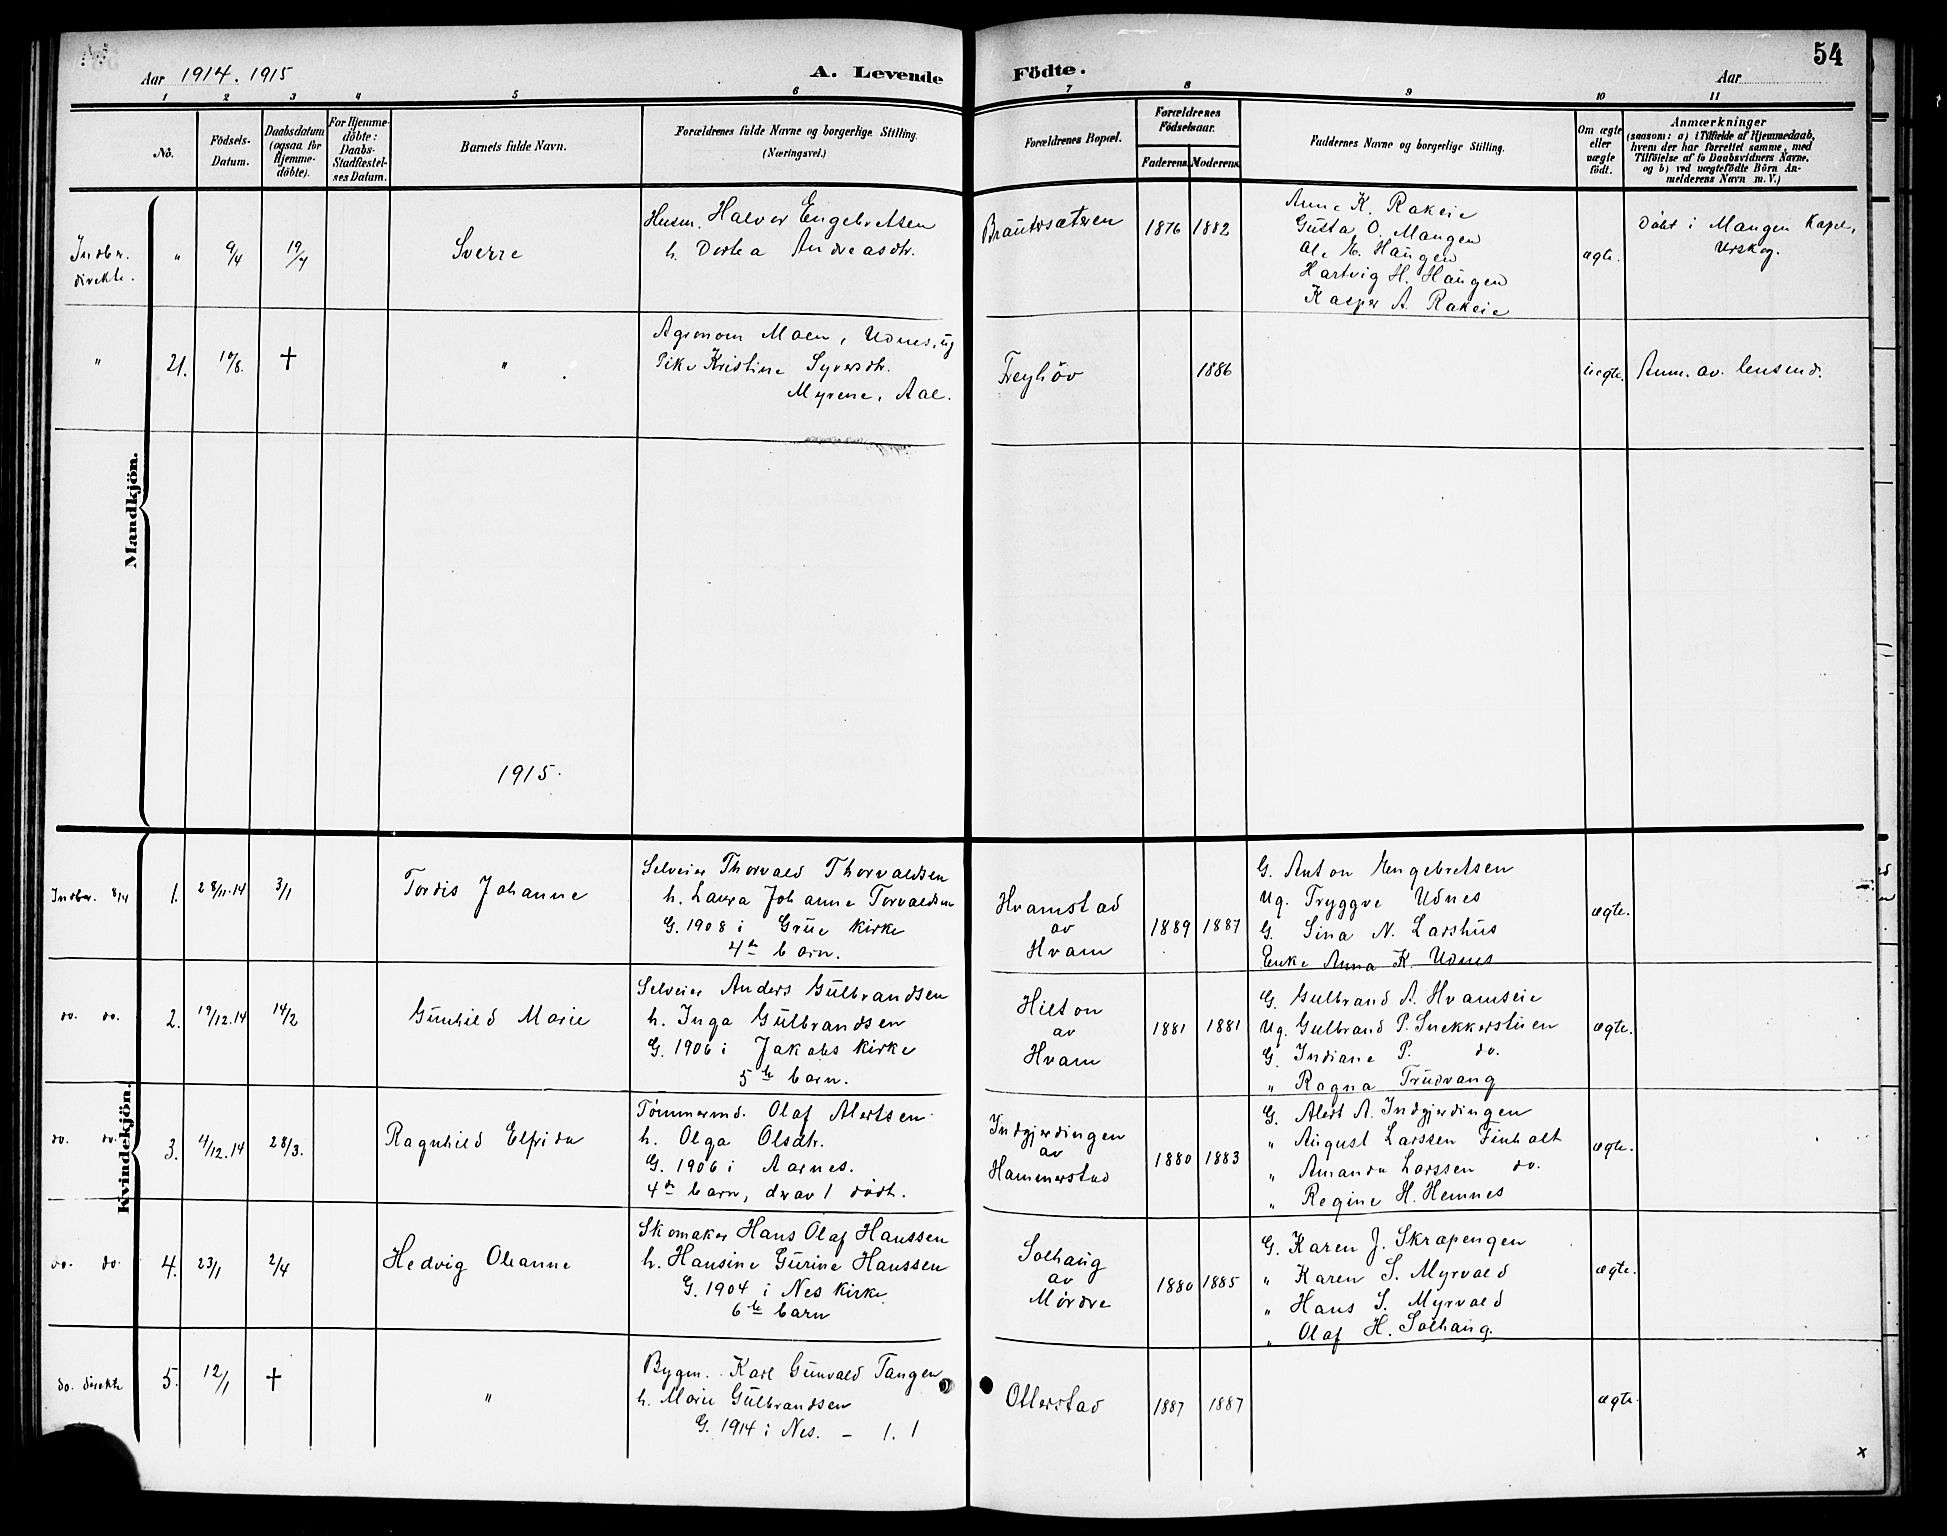 Aar 1914. 1915
A. Levende Födte.
Aar
54
1 2 3 4 5 6 7 8 9 10 11
No.
Födsels-
Datum.
Daabsdatum
(ogsaa for
Hjemme-
döbte).
For Hjemme-
döbte:
Daabs-
Stadfæstel-
ses Datum.
Barnets fulde Navn.
Forældrenes fulde Navne og borgerlige Stilling.
(Næringsvei.)
Forældrenes Bopæl.
Forældrenes
Födselsaar.
Faderens. Moderens.
Faddernes Navne og borgerlige Stilling.
Om ægte
eller
uægte
födt.
Anmærkninger
(saasom: a) i Tilfælde af Hjemmedaab,
hvem der har forrettet samme, med
Tilföielse af to Daabsvidners Navne.
og b) ved uægtefödte Börn An-
melderens Navn m. V.)
Mandkjön.
Indbr.
direkte.
" 9/4 19/4 Sverre
Husm. Halvor Engebretsen
h. Dortea Andreasdtr.
Brautersæteren 1876 1882
Anne K. Rakeie
Gusta O. Mangen
Ole E. Haugen
Hartvig H. Haugen
Kasper A. Rakeie
ægte.
Döbt i Mangen Kapel,
Urskog.
" 21. 10/8. † "
Agronom Moen, Udnes, ug
Pike Kristine Syversdtr.
Myrene, Aal.
Freyhöv 1886
uegte. Anm. av lensmd.
1915.
Kvindekjön.
Indbr. 8/4 1. 28/11.14 3/1 Tordis Johanne
Selveier Thorvald Thorvaldsen
h. Laura Johanne Torvaldsen
G. 1908 i Grue kirke
4de barn.
Hvamstad
av
Hvam
1889 1887
G. Anton Engebretsen
Ug. Tryggve Udnes
G. Sina N. Larshus
Enke Anna K. Udnes
ægte.
do. do. 2. 19/12.14 14/2 Gunhild Marie
Selveier Anders Gulbrandsen
h. Inga Gulbrandsen
G. 1906 i Jakobs kirke
5te barn.
Hilton
av
Hvam
1881 1881
G. Gulbrand A. Hvamseie
Ug. Gulbrand P. Snekkerstuen
G. Indiane P. do.
" Ragna Trudvang
ægte.
do. do. 3. 4/12.14 28/3. Ragnhild Elfrida
Tømmermd. Olaf Alertsen
h. Olga Olsdtr.
G. 1906 i Aarnes.
4de barn, derav 1 dödt.
Indgjerdingen
av
Hammerstad
1880 1883
G. Alert A. Indgjerdingen
" August Larssen Finholt
" Amanda Larssen do.
" Regine H. Hemnes
ægte.
do. do. 4. 23/1 2/4 Hedvig Oleanne
Skomaker Hans Olaf Hanssen
h. Hansine Gurine Hanssen
G. 1904 i Nes kirke
6te barn
Solhaug
av
Mørdre
1880 1885
G. Karen J. Skrapengen
" Karen S. Myrvold
" Hans S. Myrvold
" Olaf H. Solhaug.
ægte.
do. direkte 5. 12/1 † "
Bygm. Karl Gunvald Tangen
h. Marie Gulbrandsen
G. 1914 i Nes. – 1. 1
Ollerstad 1887 1887
ægte.
x